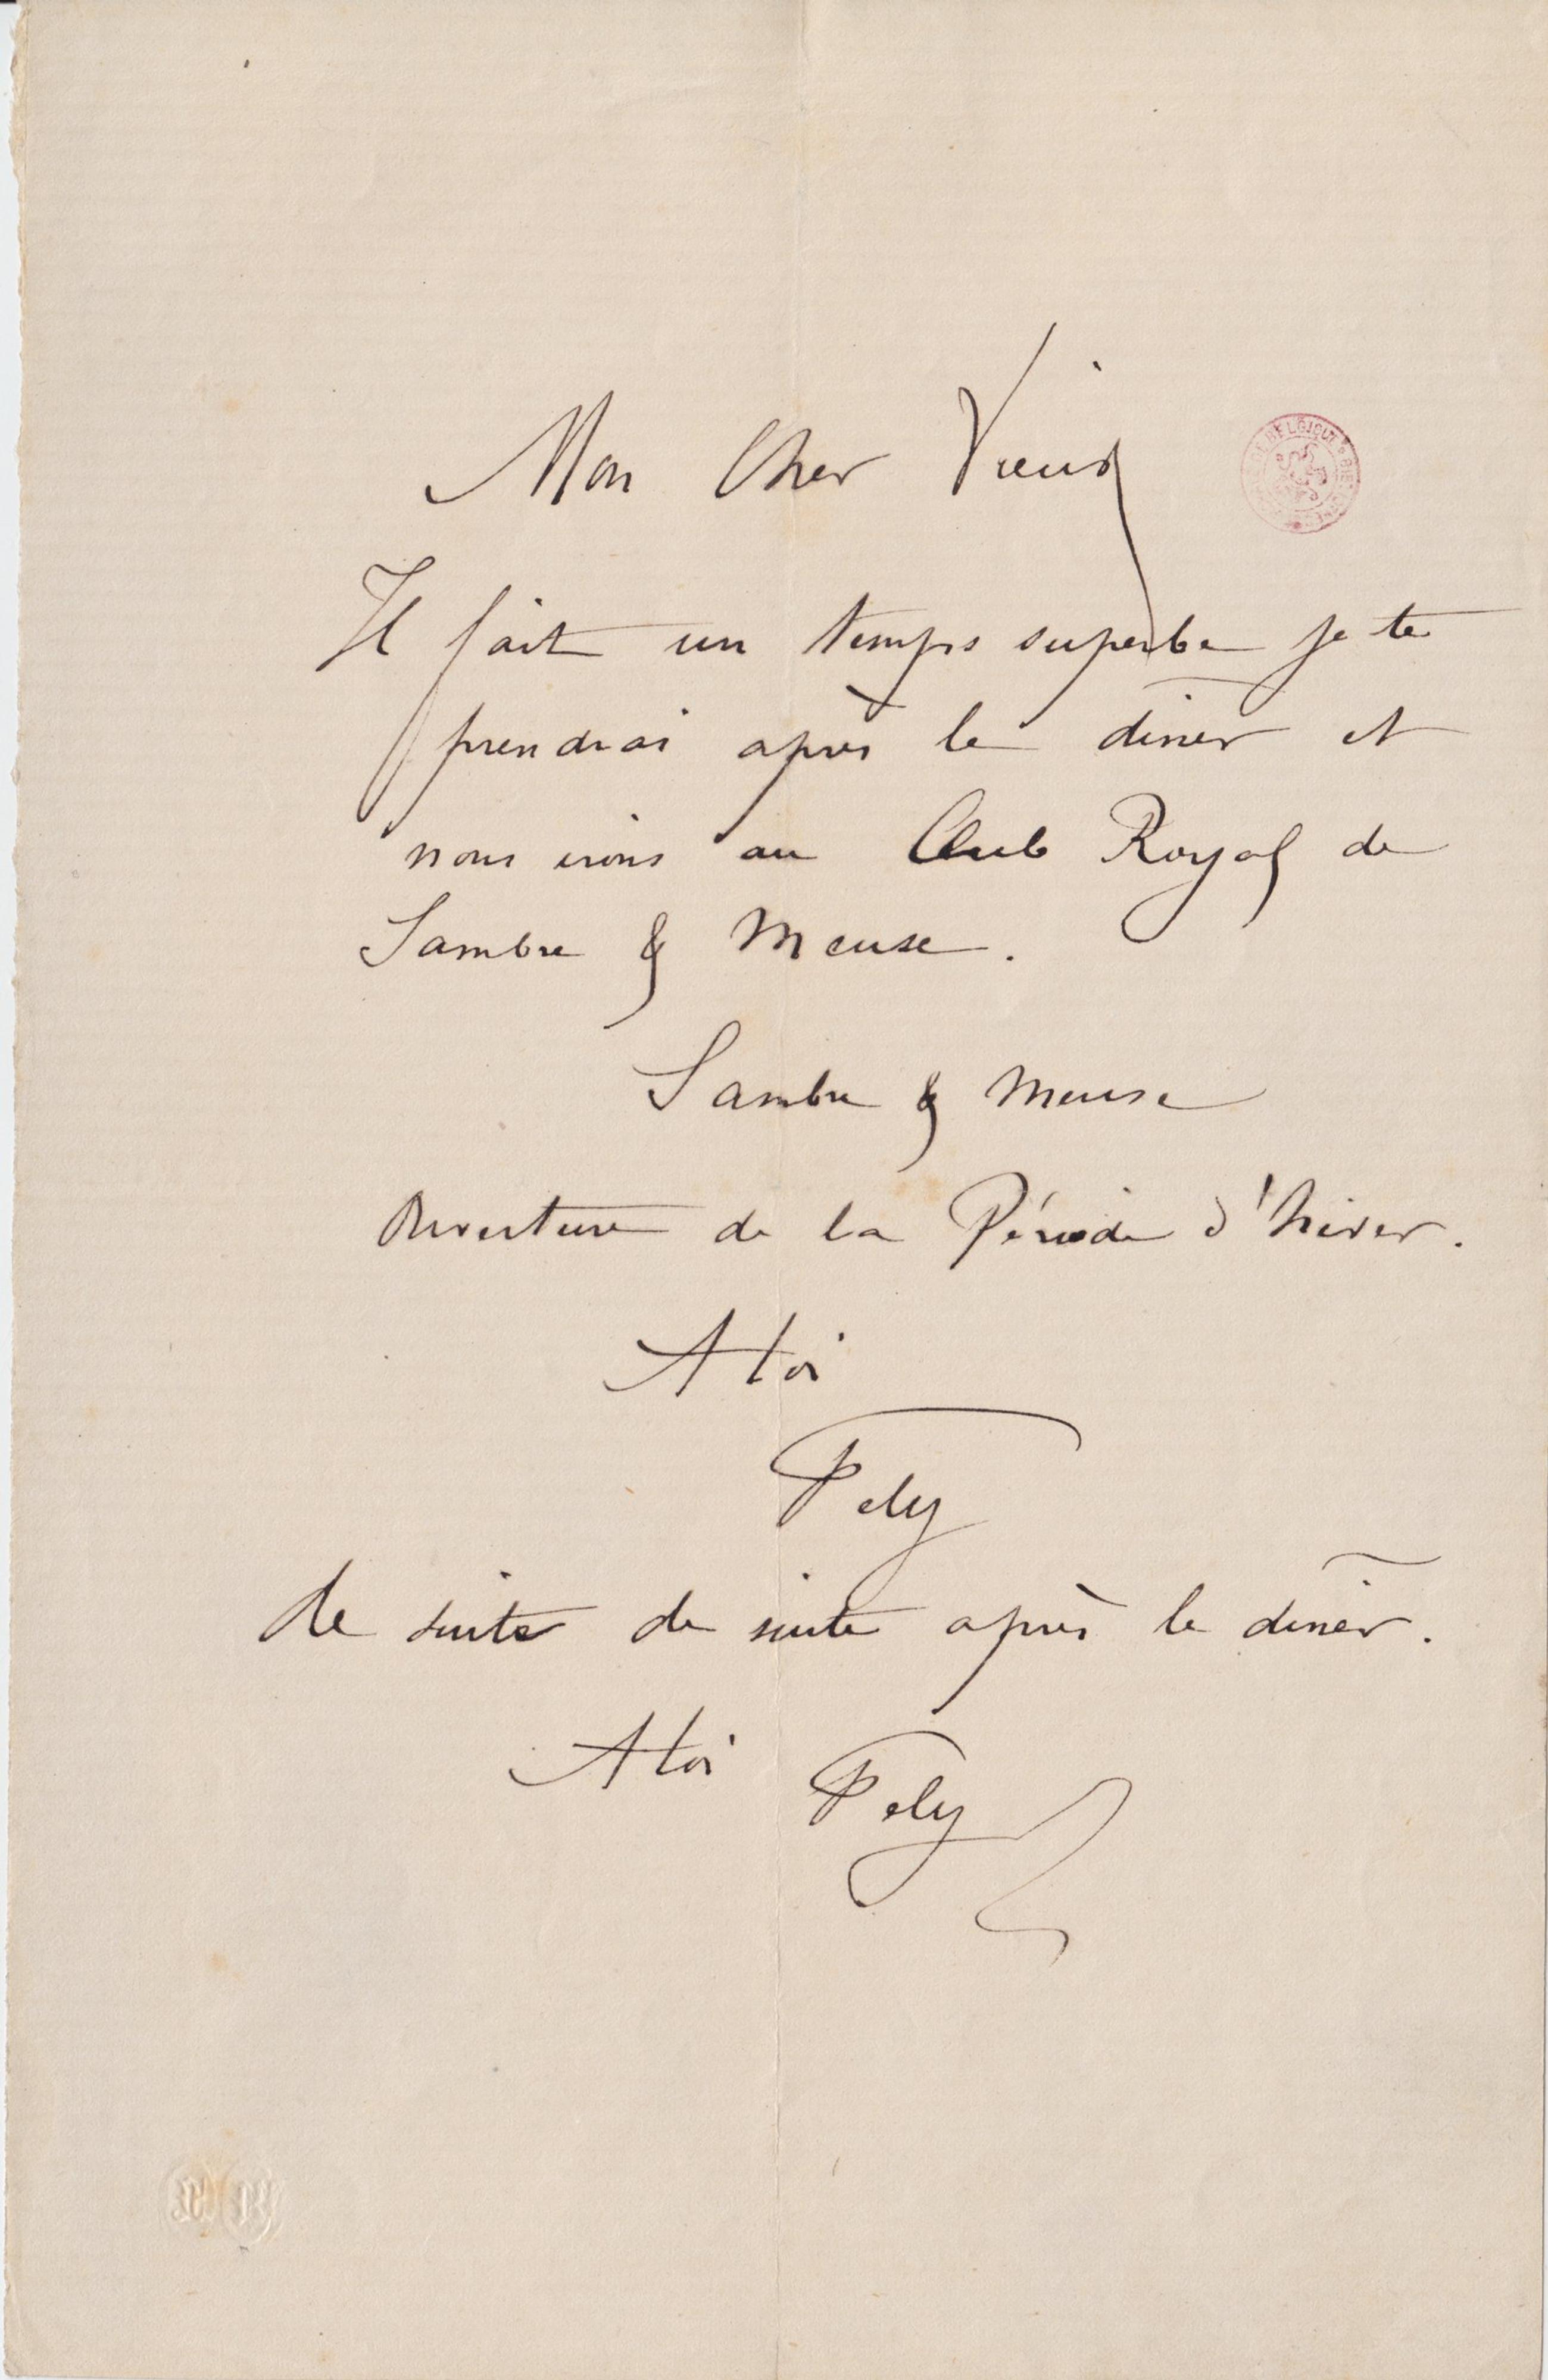 Mon Cher Vieux
Il fait un temps superbe je te
prendrai après le dîner et
nous irons au Club Royal de
Sambre & Meuse.
Sambre & Meuse
Ouverture de la Période d'hiver.
A toi
Fély
de suite de suite après le dîner.
A toi Fély
DE BELGIQUE